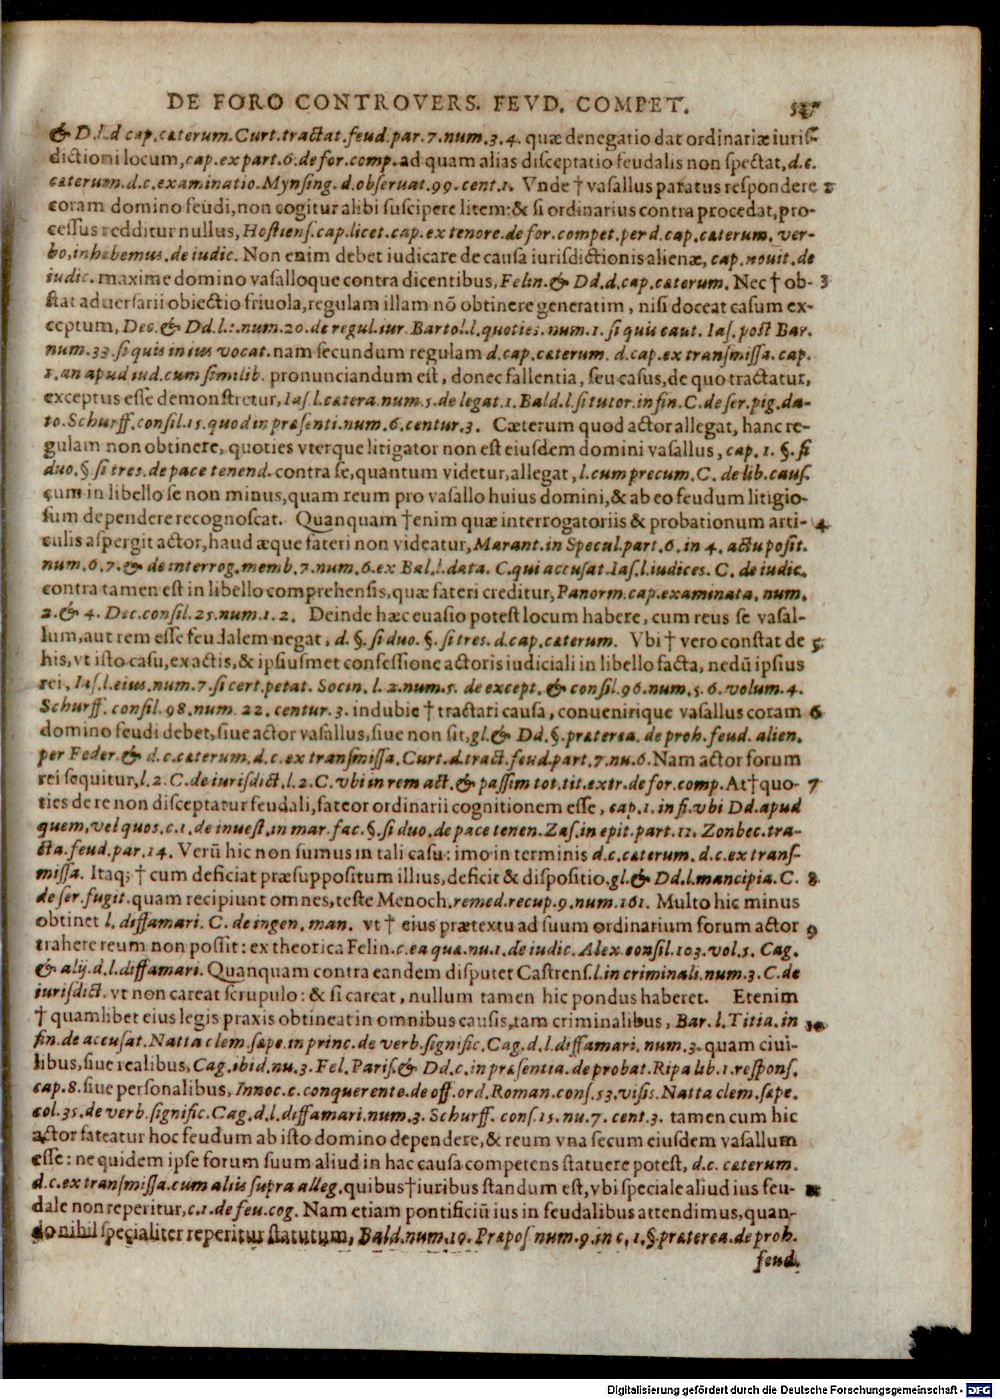 DE FORO CONTROVERS. FEVD. COMPET.
& D.l.d cap.cæterum.Curt.tractat.feud.par.7.num.3.4. quæ denegatio dat ordinariæ iuris-
dictioni locum,cap.ex part.6.de for.comp.ad quam alias disceptatio feudalis non spectat,d.c.
cæterum.d.c.examinatio.Mynsing.d.obseruat.99.cent.1. Vnde † vasallus paratus respondere 2
coram domino feudi,non cogitur alibi suscipere litem:& si ordinarius contra procedat,pro-
cessus redditur nullus, Hostiens.cap.licet.cap.ex tenore.de for.compet.per d.cap.cæterum. ver-
bo,inhibemus.de iudic. Non enim debet iudicare de causa iurisdictionis alienæ, cap.nouit.de
iudic. maxime domino vasalloque contra dicentibus, Felin.& Dd.d.cap.cæterum. Nec † ob- 3
stat aduersarii obiectio friuola,regulam illam nō obtinere generatim, nisi doceat casum ex-
ceptum, Dec.& Dd.l.1.num.20.de regul.iur. Bartol.l.quoties.num.1.si quis caut. Ias.post Bar.
num.33.si quis in ius vocat.nam secundum regulam d.cap.cæterum. d.cap.ex transmissa.cap.
1.an apud iud.cum similib. pronunciandum est, donec fallentia, seu casus,de quo tractatur,
exceptus esse demonstretur, Ias.l.cætera.num.5.de legat.1.Bald.l.si tutor.in fin.C.de ser.pig.da-
to.Schurff.consil.15.quod in præsenti.num.6.centur.3. Cæterum quod actor allegat, hanc re-
gulam non obtinere, quoties vterque litigator non est eiusdem domini vasallus, cap.1.§.si
duo.§.si tres.de pace tenend.contra se,quantum videtur,allegat, l.cum precum.C.de lib.caus.
cum in libello se non minus,quam reum pro vasallo huius domini,& ab eo feudum litigio-
sum dependere recognoscat. Quanquam † enim quæ interrogatoriis & probationum arti- 4
culis aspergit actor,haud æque fateri non videatur, Marant.in Specul.part.6.in 4.actu posit.
num.6.7.& de interrog.memb.7.num.6.ex Bal.l.data. C.qui accusat.Ias.l.iudices.C.de iudic.
contra tamen est in libello comprehensis,quæ fateri creditur, Panorm.cap.examinata.num.
2.& 4. Dec.consil.25.num.1.2. Deinde hæc euasio potest locum habere, cum reus se vasal-
lum,aut rem esse feudalem negat, d.§.si duo.§.si tres.d.cap.cæterum. Vbi † vero constat de 5
his, vt isto casu,ex actis,& ipsiusmet confessione actoris iudiciali in libello facta, nedū ipsius
rei, Ias.l.eius.num.7.si cert.petat. Socin. l.2.num.5. de except.& consil.96.num.5.6.volum.4.
Schurff.consil.98.num.22.centur.3. indubie † tractari causa, conuenirique vasallus coram 6
domino feudi debet,siue actor vasallus,siue non sit,gl.& Dd.§.præterea.de proh.feud.alien.
per Feder.& d.c.cæterum.d.c.ex transmissa.Curt.d.tract.feud.part.7.nu.6. Nam actor forum
rei sequitur,l.2.C.de iurisdict.l.2.C.vbi in rem act.& passim tot.tit.extr.de for.comp. At † quo- 7
ties de re non disceptatur feudali,fateor ordinarii cognitionem esse, cap.1.in fi.vbi Dd.apud
quem,vel quos.c.1.de inuest.in mar.fac.§.si duo.de pace tenen.Zas.in epit.part.11. Zonbec.tra-
cta.feud.par.14. Verū hic non sumus in tali casu: imo in terminis d.c.cæterum.d.c.ex trans-
missa. Itaq; † cum deficiat præsuppositum illius,deficit & dispositio,gl.& Dd.l.mancipia.C. 8
de ser.fugit.quam recipiunt omnes,teste Menoch.remed.recup.9.num.161. Multo hic minus
obtinet l.diffamari.C.de ingen.man. vt † eius prætextu ad suum ordinarium forum actor 9
trahere reum non possit: ex theorica Felin.c.ea quæ.nu.1.de iudic. Alex.consil.103.vol.5. Cag.
& alij.d.l.diffamari. Quanquam contra eandem disputet Castrens.l.in criminali.num.3.C.de
iurisdict. vt non careat scrupulo: & si careat, nullum tamen hic pondus haberet. Etenim
† quamlibet eius legis praxis obtineat in omnibus causis,tam criminalibus, Bar.l.Titia.in 10
fin.de accusat.Natta clem.sæpe.in princ.de verb.signific.Cag.d.l.diffamari.num.3.quam ciui-
libus,siue realibus, Cag.ibid.nu.3.Fel.Paris.& Dd.c.in præsentia.de probat.Ripa lib.1.respons.
cap.8.siue personalibus, Innoc.c.conquerente.de off.ord.Roman.cons.53.visis.Natta clem.sæpe.
col.35.de verb.signific.Cag.d.l.diffamari.num.3. Schurff.cons.15.nu.7.cent.3. tamen cum hic
actor fateatur hoc feudum ab isto domino dependere,& reum vna secum eiusdem vasallum
esse: ne quidem ipse forum suum aliud in hac causa competens statuere potest, d.c.cæterum.
d.c.ex transmissa.cum aliis supra alleg.quibus † iuribus standum est, vbi speciale aliud ius feu-
dale non reperitur,c.1.de feu.cog. Nam etiam pontificiū ius in feudalibus attendimus,quan-
do nihil specialiter reperitur statutum, Bald.num.19. Præpos num.9.in c.1.§.præterea.de proh.
feud.
Digitalisierung gefördert durch die Deutsche Forschungsgemeinschaft - DFG